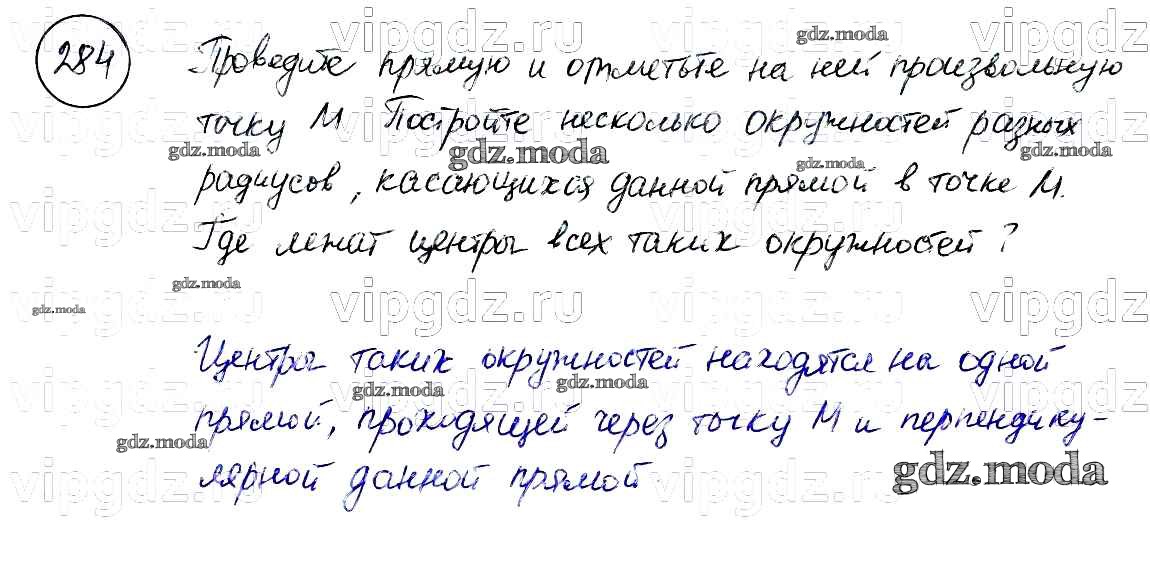 284
Проведите прямую и отметьте на ней произвольную
точку М. Постройте несколько окружностей разных
радиусов, касающихся данной прямой в точке М.
Где лежат центры всех таких окружностей?
Центры таких окружностей находятся на одной
прямой, проходящей через точку М и перпендику-
лярной данной прямой
vipgdz.ru
gdz.moda